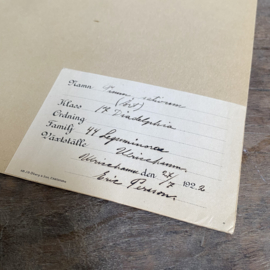 Namn: Pisum sativum
(Ärt)
Klass 17 Diadelphia
Ordning
Familj 44 Leguminosae
Växtställe Ulricehamn.
Ulricehamn den 24/7 1922
Eric Persson.